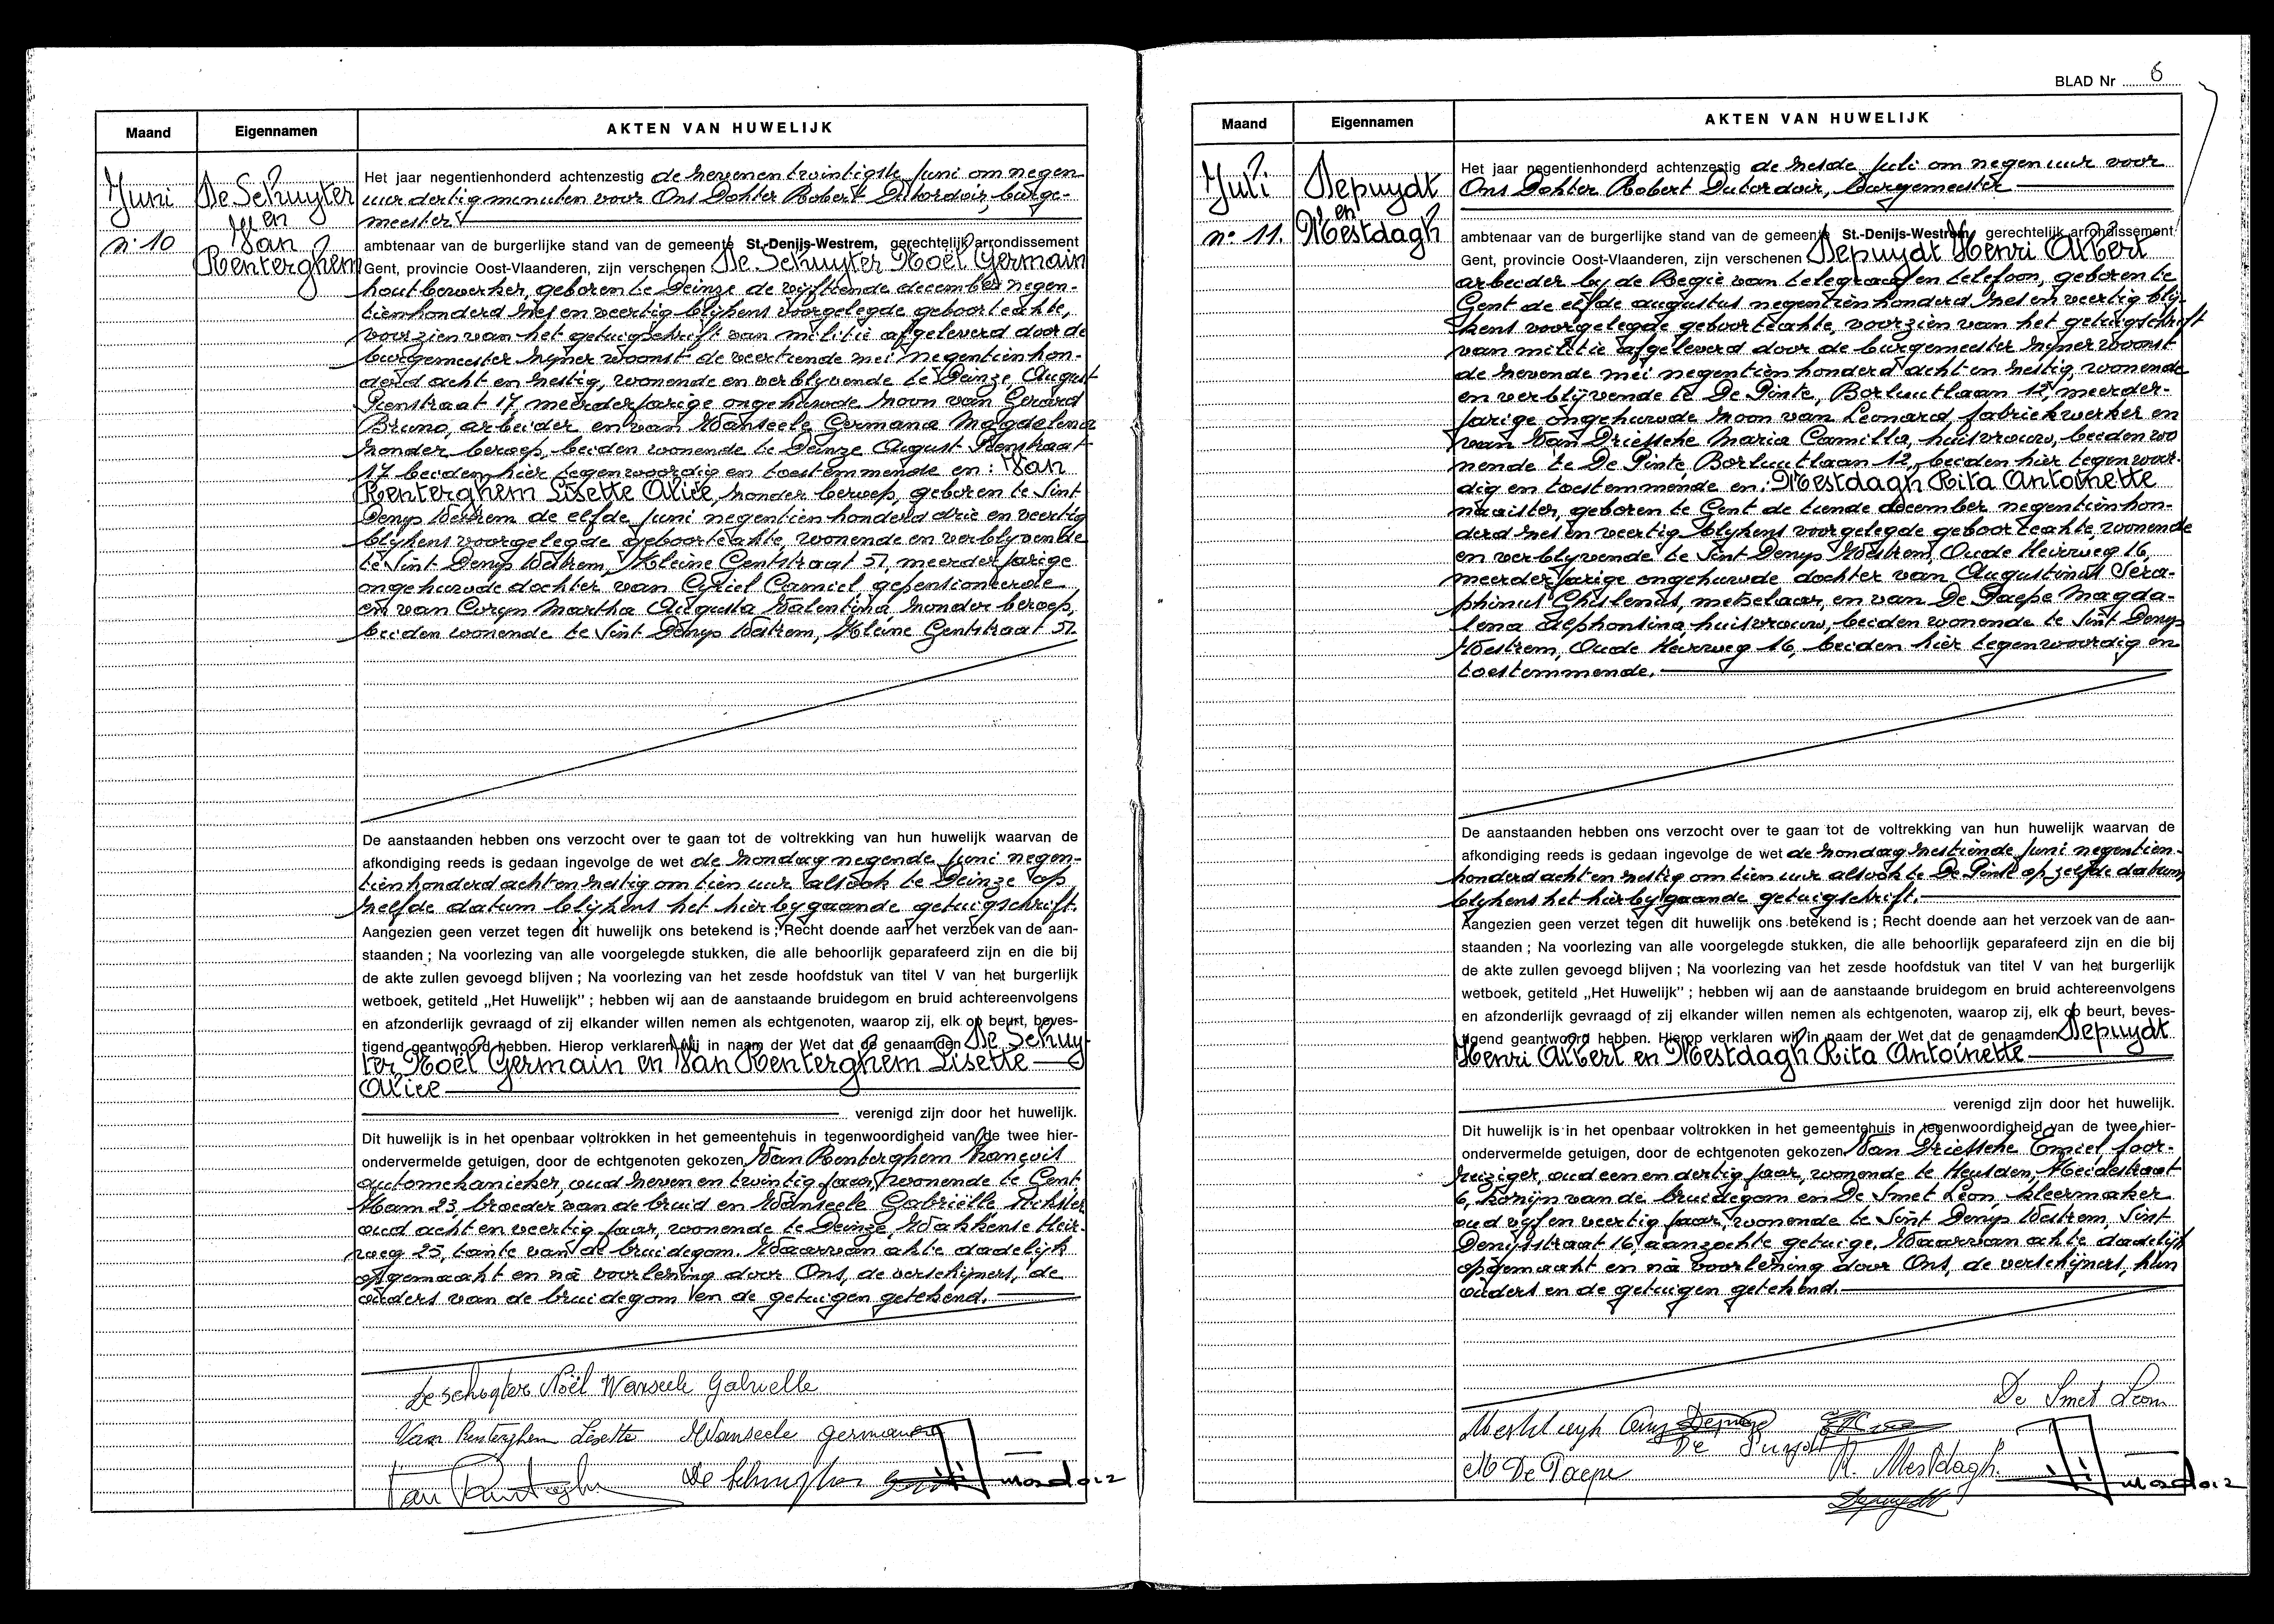 Maand
Eigennamen
AKTEN VAN HUWELIJK
Juni
n: 10
De Schuyter
en
Van
Renterghem
Het jaar negentienhonderd achtenzestig de zevenentwintigste Juni om negen
uur dertig minuten voor Ons Dokter Robert Dutordoir, burge-
meester
ambtenaar van de burgerlijke stand van de gemeente St.-Denijs-Westrem, gerechtelijk arrondissement
Gent, provincie Oost-Vlaanderen, zijn verschenen De Schuyter Noël Germain
houtbewerker, geboren te Deinze de vijftiende december negen-
tienhonderd zes en veertig blijkens voorgelegde geboorteakte,
voorzien van het getuigschrift van militie afgeleverd door de
burgemeester zijner woonst de veertiende mei negentienhon-
derd acht en zestig, wonende en verblijvende te Deinze August
Pienstraat 17, meerderjarige ongehuwde zoon van Gerard
Bruno, arbeider en van Wanseele Germana Magdelena
zonder beroep, beiden wonende te Deinze August Pienstraat
17 beiden hier tegenwoordig en toestemmende en: Van
Renterghem Lisette Alice, zonder beroep, geboren te Sint
Denijs Westrem de elfde Juni negentienhonderd drie en veertig
blijkens voorgelegde geboorteakte, wonende en verblijvende
te Sint Denijs Westrem, Kleine Gentstraat 51, meerderjarige
ongehuwde dochter van Cyriel Camiel gepensioneerde
en van Coryn Martha Augusta Valentina zonder beroep,
beiden wonende te Sint Denijs Westrem, Kleine Gentstraat 51.
De aanstaanden hebben ons verzocht over te gaan tot de voltrekking van hun huwelijk waarvan de
afkondiging reeds is gedaan ingevolge de wet de zondag negende Juni negen-
tienhonderd acht en zestig om tien uur alsook te Deinze op
zelfde datum blijkens het hierbijgaande getuigschrift.
Aangezien geen verzet tegen dit huwelijk ons betekend is ; Recht doende aan het verzoek van de aan-
staanden ; Na voorlezing van alle voorgelegde stukken, die alle behoorlijk geparafeerd zijn en die bij
de akte zullen gevoegd blijven ; Na voorlezing van het zesde hoofdstuk van titel V van het burgerlijk
wetboek, getiteld „Het Huwelijk" ; hebben wij aan de aanstaande bruidegom en bruid achtereenvolgens
en afzonderlijk gevraagd of zij elkander willen nemen als echtgenoten, waarop zij, elk op beurt, beves-
tigend geantwoord hebben. Hierop verklaren wij in naam der Wet dat de genaamden De Schuy-
ter Noël Germain en Van Renterghem Lisette
Alice
verenigd zijn door het huwelijk.
Dit huwelijk is in het openbaar voltrokken in het gemeentehuis in tegenwoordigheid van de twee hier-
ondervermelde getuigen, door de echtgenoten gekozen Van Renterghem François
automekanieker, oud zeven en twintig jaar, wonende te Gent
Ham 23, broeder van de bruid en Wanseele Gabriëlle stikster
oud acht en veertig jaar, wonende te Deinze, Wakkense Heir-
weg 25, tante van de bruidegom. Waarvan akte dadelijk
opgemaakt en na voorlezing door Ons, de verschijners, de
ouders van de bruidegom en de getuigen getekend.
De Schuyter Noël Wanseele Gabrielle
Van Renterghem Lisette Wanseele Germana
BLAD Nr 6
Maand
Eigennamen
AKTEN VAN HUWELIJK
Juli
n° 11.
Depuydt
en
Mestdagh
Het jaar negentienhonderd achtenzestig de zesde Juli om negen uur voor
Ons Dokter Robert Dutordoir, burgemeester
ambtenaar van de burgerlijke stand van de gemeente St.-Denijs-Westrem, gerechtelijk arrondissement
Gent, provincie Oost-Vlaanderen, zijn verschenen Depuydt Henri Albert
arbeider bij de Regie van telegraaf en telefoon, geboren te
Gent de elfde augustus negentienhonderd zes en veertig blij-
kens voorgelegde geboorteakte, voorzien van het getuigschrift
van militie afgeleverd door de burgemeester zijner woonst
de zevende mei negentienhonderd acht en zestig, wonende
en verblijvende te De Pinte, Borluutlaan 12, meerder-
jarige ongehuwde zoon van Leonard, fabriekwerker en
van Van Driessche Maria Camilla, huisvrouw, beiden wo
nende te De Pinte Borluutlaan 12, beiden hier tegenwoor-
dig en toestemmende en: Mestdagh Rita Antoinette
naaister, geboren te Gent de tiende december negentienhon-
derd zes en veertig blijkens voorgelegde geboorteakte, wonende
en verblijvende te Sint Denijs Westrem, Oude Heerweg 16,
meerderjarige ongehuwde dochter van Augustinus Sera-
phinus Ghislenus, metselaar, en van De Paepe Magda-
lena Alphonsina, huisvrouw, beiden wonende te Sint Denijs
Westrem, Oude Heerweg 16, beiden hier tegenwoordig en
toestemmende.
De aanstaanden hebben ons verzocht over te gaan tot de voltrekking van hun huwelijk waarvan de
afkondiging reeds is gedaan ingevolge de wet de zondag zestiende Juni negentien-
honderd acht en zestig om tien uur alsook te De Pinte op zelfde datum
blijkens het hierbijgaande getuigschrift.
Aangezien geen verzet tegen dit huwelijk ons betekend is ; Recht doende aan het verzoek van de aan-
staanden ; Na voorlezing van alle voorgelegde stukken, die alle behoorlijk geparafeerd zijn en die bij
de akte zullen gevoegd blijven ; Na voorlezing van het zesde hoofdstuk van titel V van het burgerlijk
wetboek, getiteld „Het Huwelijk" ; hebben wij aan de aanstaande bruidegom en bruid achtereenvolgens
en afzonderlijk gevraagd of zij elkander willen nemen als echtgenoten, waarop zij, elk op beurt, beves-
tigend geantwoord hebben. Hierop verklaren wij in naam der Wet dat de genaamden Depuydt
Henri Albert en Mestdagh Rita Antoinette
verenigd zijn door het huwelijk.
Dit huwelijk is in het openbaar voltrokken in het gemeentehuis in tegenwoordigheid van de twee hier-
ondervermelde getuigen, door de echtgenoten gekozen Van Driessche Emiel, foor-
reiziger, oud een en dertig jaar, wonende te Heusden, Heidestraat
6, kozijn van de bruidegom en De Smet Leon, kleermaker
oud vijf en veertig jaar, wonende te Sint Denijs Westrem, Sint
Denijsstraat 16, aanzochte getuige. Waarvan akte dadelijk
opgemaakt en na voorlezing door Ons, de verschijners, hun
ouders en de getuigen getekend.
De Smet Leon
M De Paepe R. Mestdagh